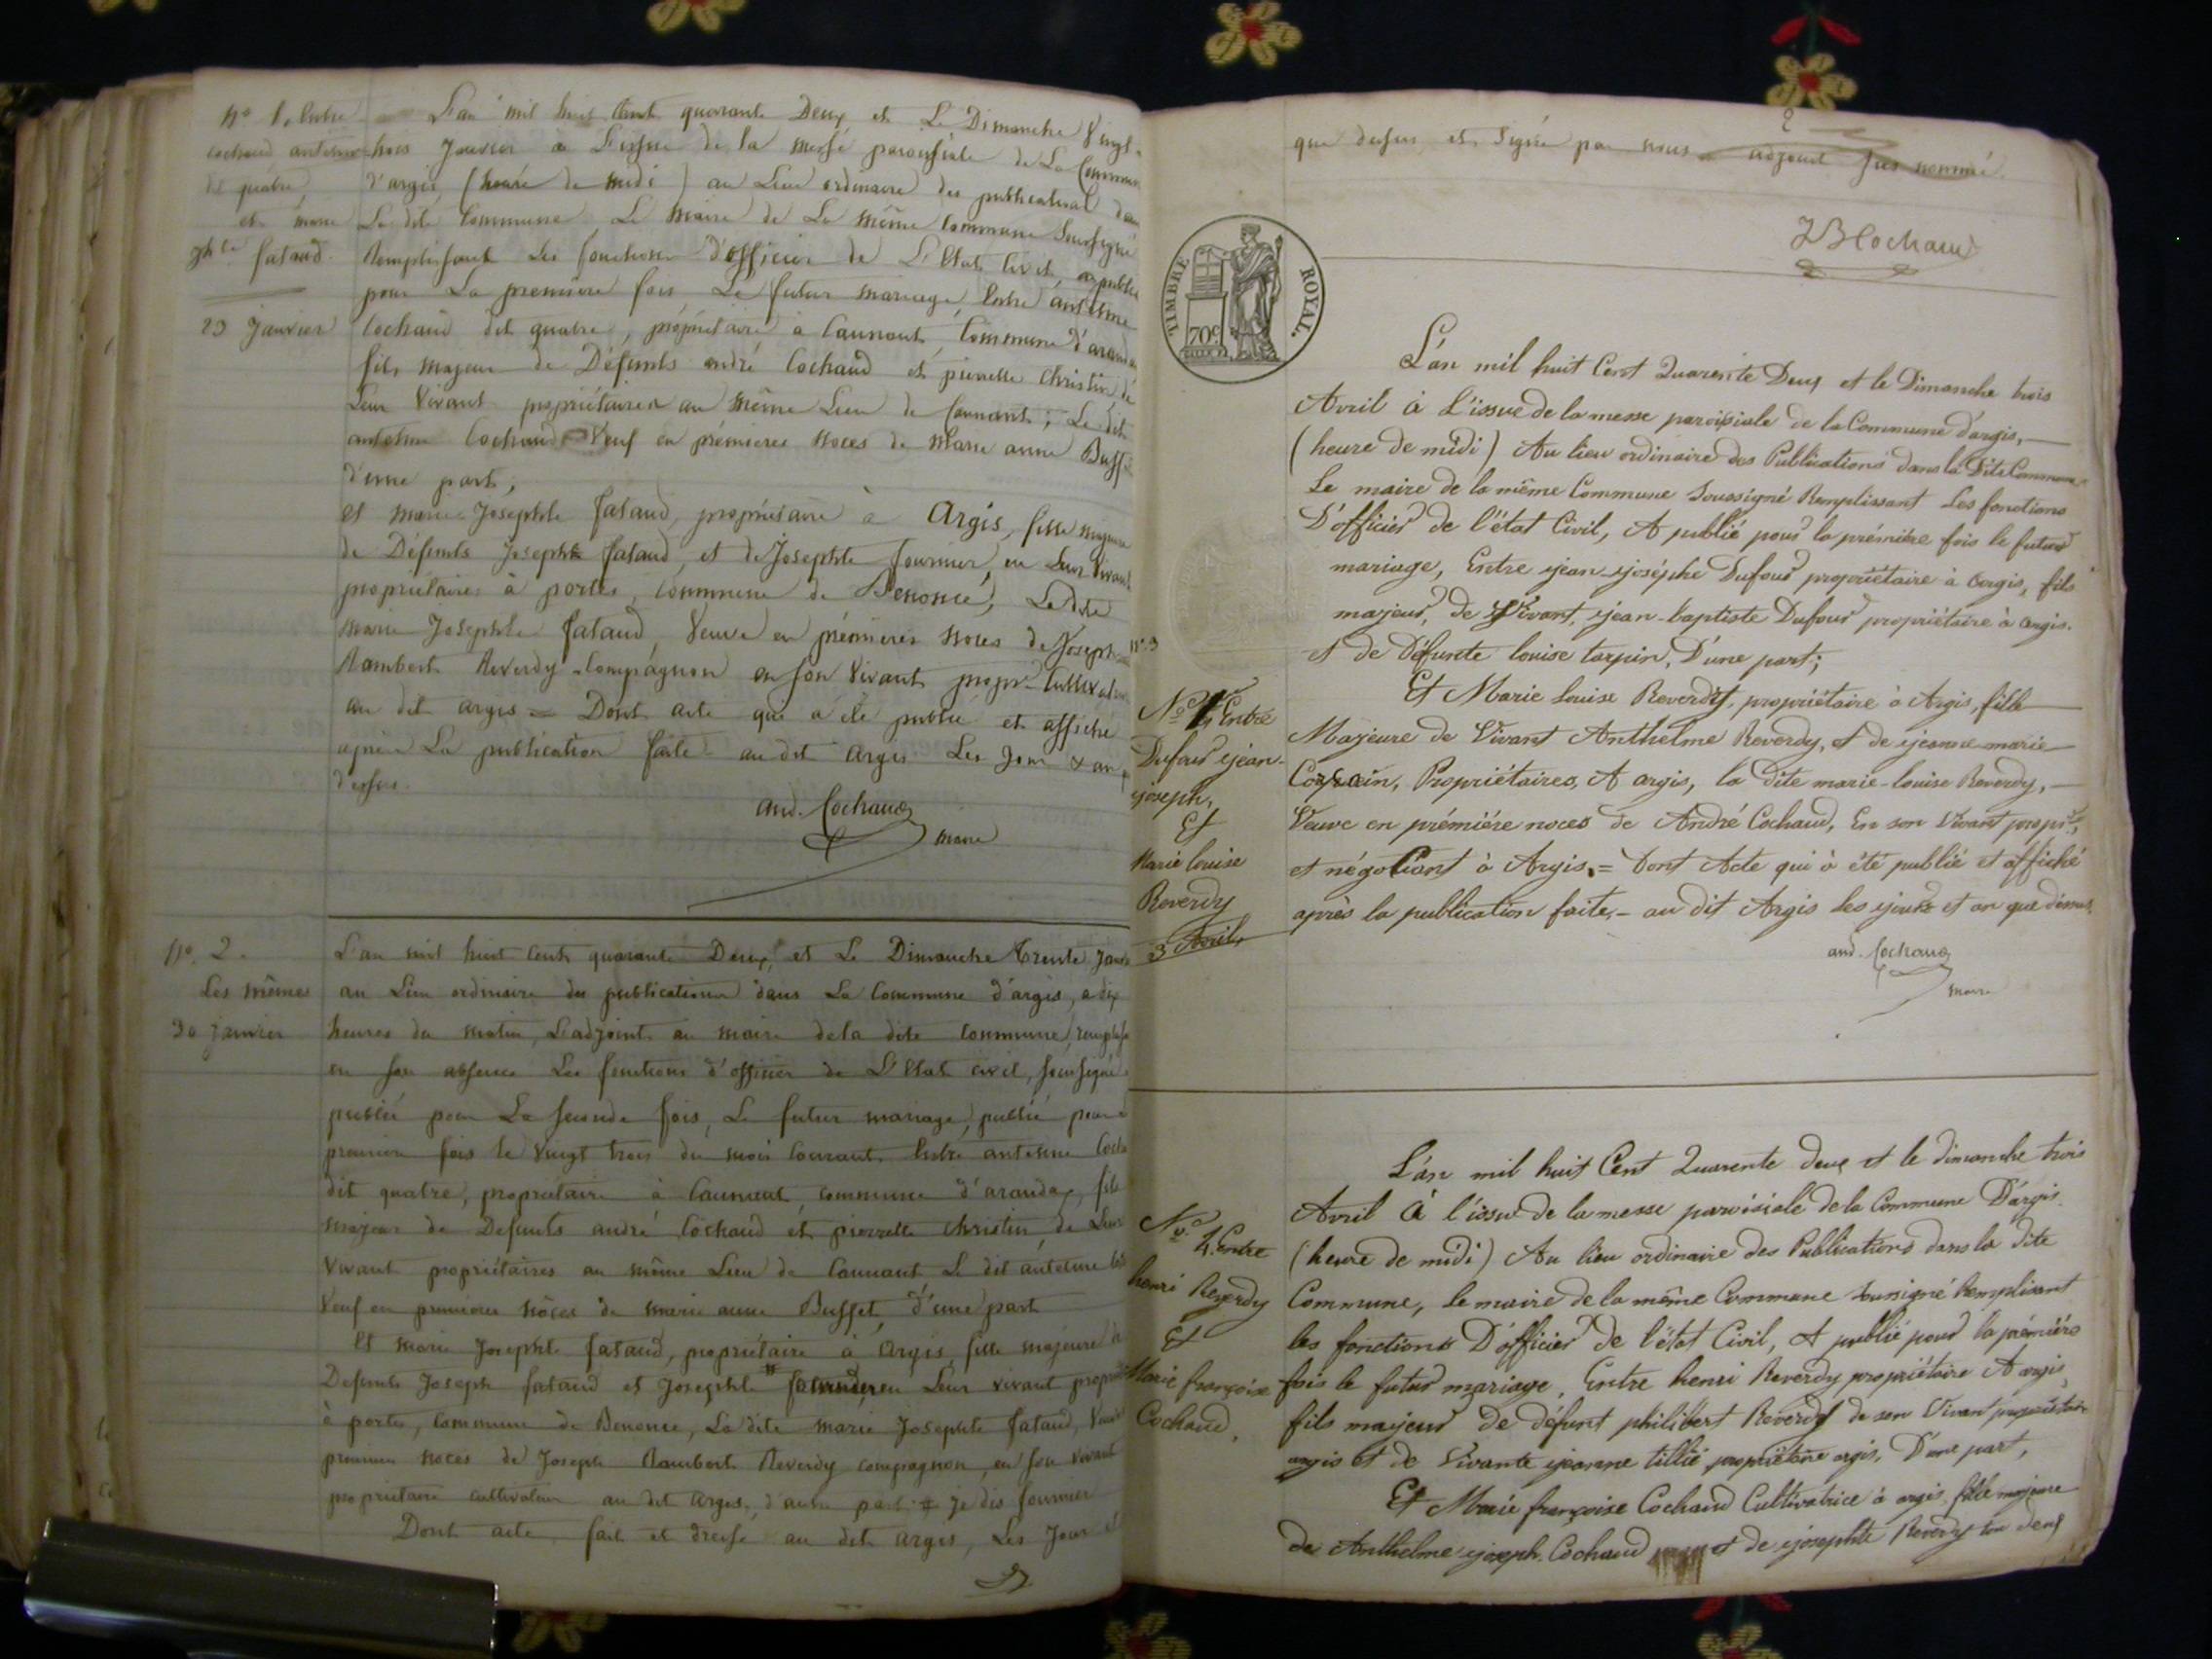 N° 1. Entre
Cochaud antelme
dit quatre
et marie
Jphte fataud.
23 Janvier
L'an mil huit Cent quarant Deux et Le Dimanche Vingt
trois Janvier à L'issue de la messe paroissiale de La Commune
d'argis (heure de midi) au Lieu ordinaire des publications dans
La dite Commune, Le Maire de La même Commune Soussigné
Remplissant Les fonctions d'officier de L'Etat Civil, a publié
pour La première fois, Le futur mariage, Entre antelme
Cochaud dit quatre, propriétaire à Caunant, Commune d'arandas
fils majeur de Défunts andré Cochaud et pierrette Christin de
Leur Vivant propriétaires au même Lieu de Connant; Le dit
antelme Cochaud Veuf en prémieres noces de Marie anne Buffet
d'une part,
et marie Josephte fataud, propriétaire à Argis, fille majeure
de Défunts Joseph fataud, et de Josephte fournier, en Leur Vivant
propriétaires à portes, commune de Benonce, La dite
marie Josephte fataud Veuve en prémieres noces de Joseph
Rambert Reverdy-Compagnon en son Vivant propr- Cultivateur
au dit argis = Dont acte qui a été publié et affiché
après La publication faite au dit argis Les Jour & an que
dessus.
and. Cochaud
maire
N° 2.
Les mêmes
30 janvier
L'an mil huit Cent quarante Deux, et Le Dimanche trente Janvier
au Lieu ordinaire des publications dans La Commune d'argis, a dix
heures du matin, L'adjoint au maire de la dite Commune, remplissant
en son absence Les fonctions d'officier de L'Etat civil, soussigné
publié pour La seconde fois, Le futur mariage, publié pour la
première fois le vingt trois du mois Courant Entre antelme Cochaud
dit quatre, propriétaire à Caunant, commune d'arandas, fils
majeur de Defunts andré Cochaud et pierrette Christin, de Leur
vivant propriétaires au même Lieu de Caunant, Le dit antelme
Veuf en premières nôces de marie anne Buffet, d'une part
Et marie Josephte fataud, propriétaire à Argis, fille majeure de
Defunts Joseph fataud et Josephte en Leur vivant propriétaires
à portes, Commune de Benonce, La dite marie Josephte fataud, Veuve
premieres noces de Joseph Rambert Reverdy compagnon, en son vivant
propriétaire cultivateur au dit argis, d'autre part # je dis fournier
Dont acte fait et dressé au dit argis, Les Jour et
2
que dessus et signé par nous adjoint sus nommé.
JB Cochaud
TIMBRE ROYAL.
70 c
n° 3
N° 4 Entre
Dufour jean-
joseph,
Et
Marie louise
Reverdy
3 Avril,
L'an mil huit Cent Quarente Deux et le Dimanche trois
Avril à L'issue de la messe paroisiale de la Commune d'argis,
(heure de midi) Au lieu ordinaire des Publications dans la Dite Commune
Le maire de la même Commune Soussigné Remplissant Les fonctions
D'officier de l'état Civil, A publié pour la prémière fois le futur
mariage, Entre jean-joséphe Dufour propriétaire à argis, fils
majeur, de Vivant, jean-baptiste Dufour propriétaire à argis.
et de Défunte louise tarpin, D'une part;
Et Marie louise Reverdy, propriétaire à Argis, fille
Majeure de Vivant Anthelme Reverdy, et de jeanne marie
Propriétaires, A argis, la dite marie-louise Reverdy,
Veuve en prémiére noces de André Cochaud, En son Vivant propre,
et négociant à Argis, = dont Acte qui à été publié et affiché
après la publication faite,- au dit Argis les jours et an que dessus.
and. Cochaud
maire
N° 4. Entre
henri Reverdy
Et
Marie françoise
Cochaud,
L'an mil huit Cent Quarente deux et le dimanche trois
Avril à l'issue de la messe paroisiale de la Commune D'argis.
(heure de midi) Au lieu ordinaire des Publications dans la dite
Commune, le maire de la même Commune Soussigné Remplisant
les fonctions D'officier de l'état Civil, A publié pour la prémiére
fois le futur mariage, Entre henri Reverdy propriétaire A argis,
fils majeur de défunt philibert Reverdy de son Vivant propriétaire
argis et de Vivante jeanne tillié propriétaire argis, D'une part,
Et Marie françoise Cochaud Cultivatrice à argis fille majeure
de Anthelme joseph. Cochaud et de josephte Reverdy tou deux